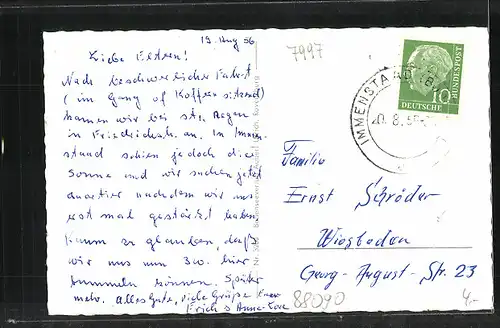 19. Aug 56
Liebe Eltern!
Nach beschwerlicher Fahrt
(im Gang auf Koffer sitzend)
kamen wir bei str. Regen
in Friedrichsh. an. In Immen-
stand schien jedoch die
Sonne und wir suchen jetzt
quartier nachdem wir uns
erst mal gestärkt haben.
Kaum zu glauben, daß
wir uns nun 3w. hier
tummeln können. Später
mehr. Alles Gute, viele Grüße Euer
Erich & Anne-Lore
7997
IMMENSTAAD (B
20.8.56
DEUTSCHE
BUNDESPOST
10
Familie
Ernst Schröder
Wiesbaden
Georg-August-Str. 23
88090
4,-